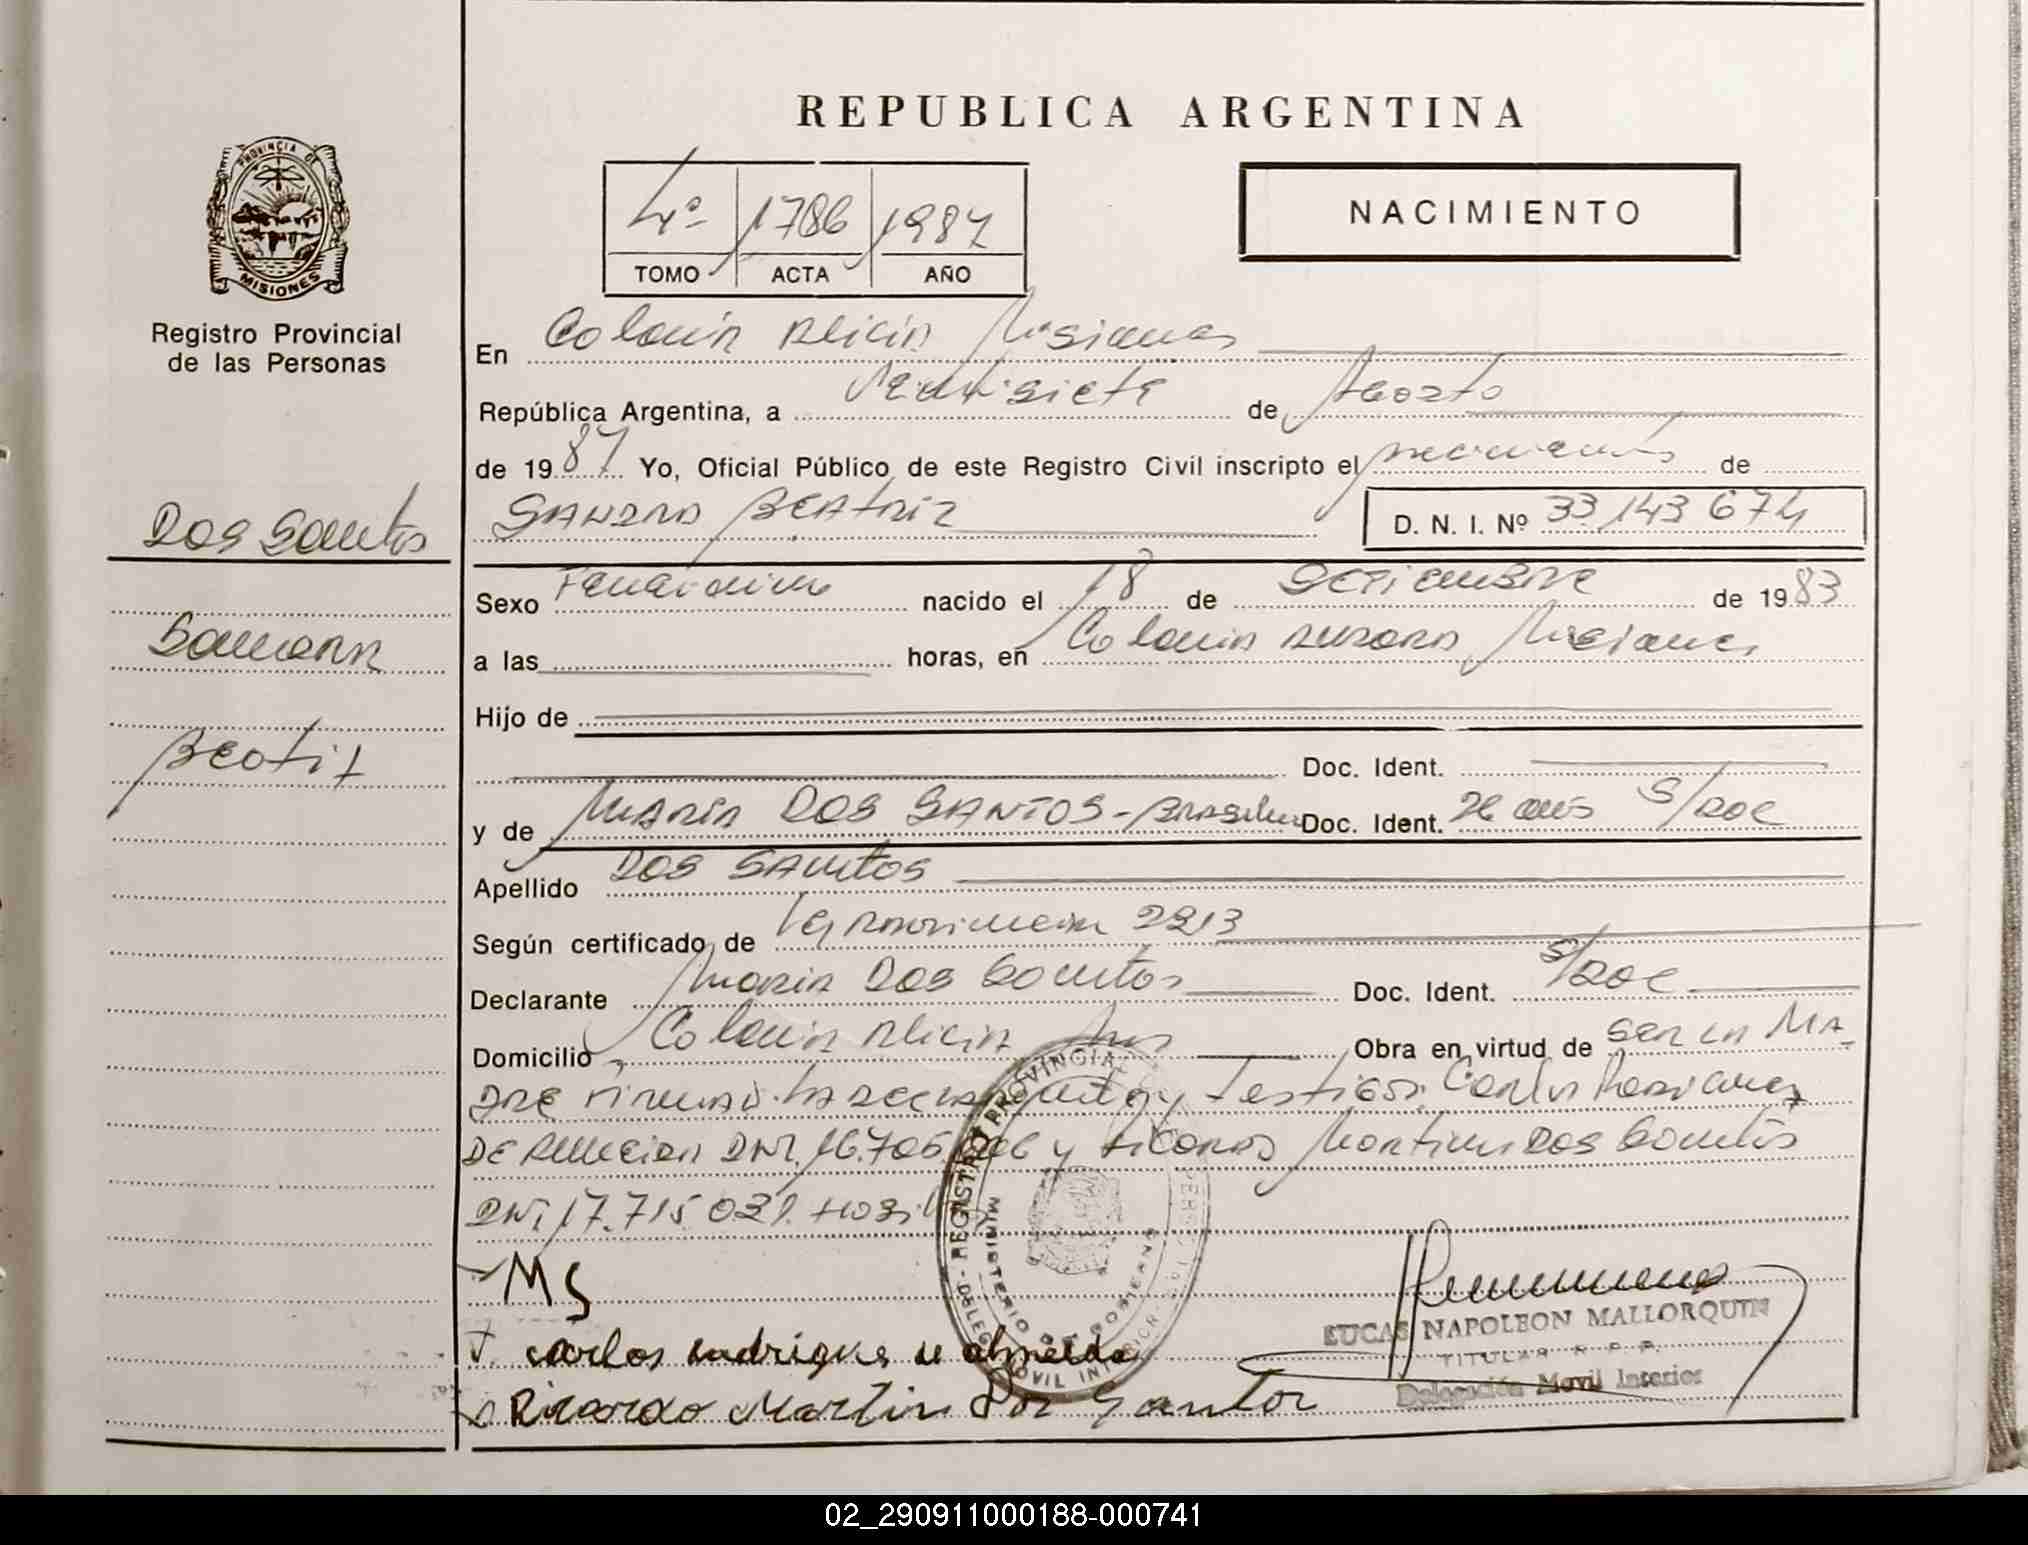 REPUBLICA ARGENTINA
PROVINCIA DE MISIONES
Registro Provincial
de las Personas
4º 1786 1987
TOMO ACTA AÑO
NACIMIENTO
En Colonia Alicia Misiones
República Argentina, a Veintisiete de Agosto
de 1987 Yo, Oficial Público de este Registro Civil inscripto el nacimiento de
SANDRA BEATRIZ D. N. I. Nº 33.143.674
Dos Santos
Sandra
Beatriz
Sexo Femenino nacido el 18 de Setiembre de 1983
a las horas, en Colonia Aurora Misiones
Hijo de
Doc. Ident.
y de MARIA DOS SANTOS - Brasilera Doc. Ident. 26 años S/DOC
Apellido DOS SANTOS
Según certificado de 2213
Declarante Maria Dos Santos Doc. Ident. S/DOC
Domicilio Colonia Alicia Mnes Obra en virtud de SER LA MA-
DRE Firmando la declarante y Testigos: Carlos Rodriguez
DE ALMEIDA DNI. 16.706. y Ricardo Martin Dos Santos
DNI 17.715.031.
MS
Carlos rodrigues de almeida
Ricardo Martin Dos Santos
REGISTRO PROVINCIAL
MINISTERIO DE GOBIERNO
LUCAS NAPOLEON MALLORQUIN
TITULAR R. P. P.
Delegación Movil Interior
02_290911000188-000741